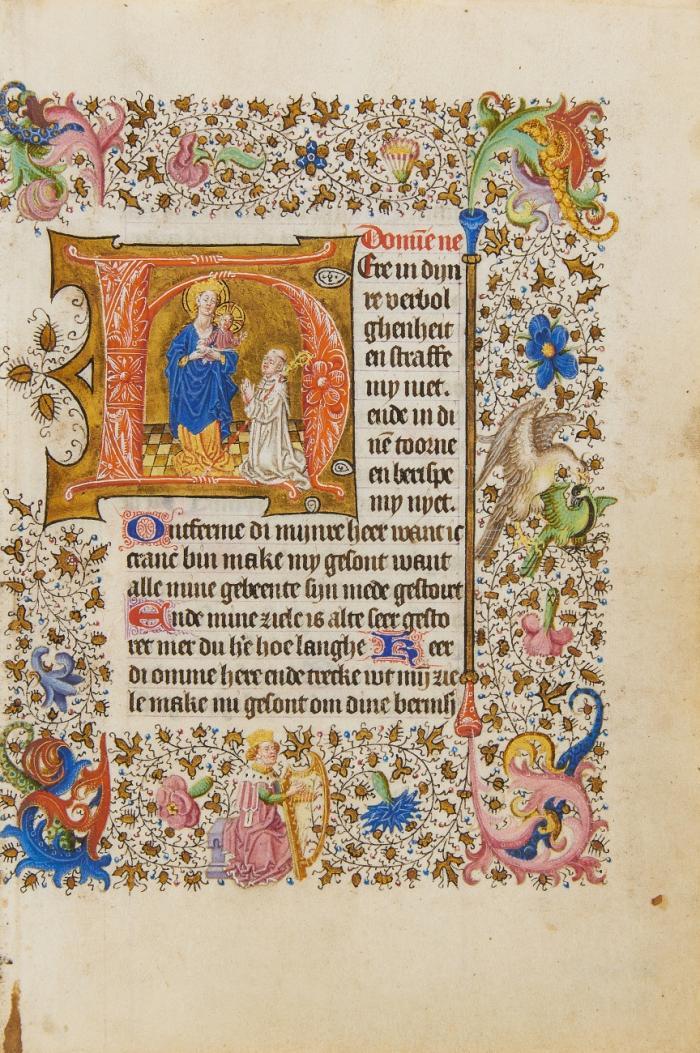 Domīe ne
Here in dijn
re verbol
ghenheit
en straffe
my niet.
ende in di
nē toorne
en berispe
my nyet.
Ontferme di mijnre heer want ic
cranc bin make my gesont want
alle mine gebeente sijn mede gestoirt
Ende mine ziele is alte seer gesto
ret mer du h'e hoe langhe Keer
di omme here ende trecke wt mij zie
le make mi gesont om dine bermh